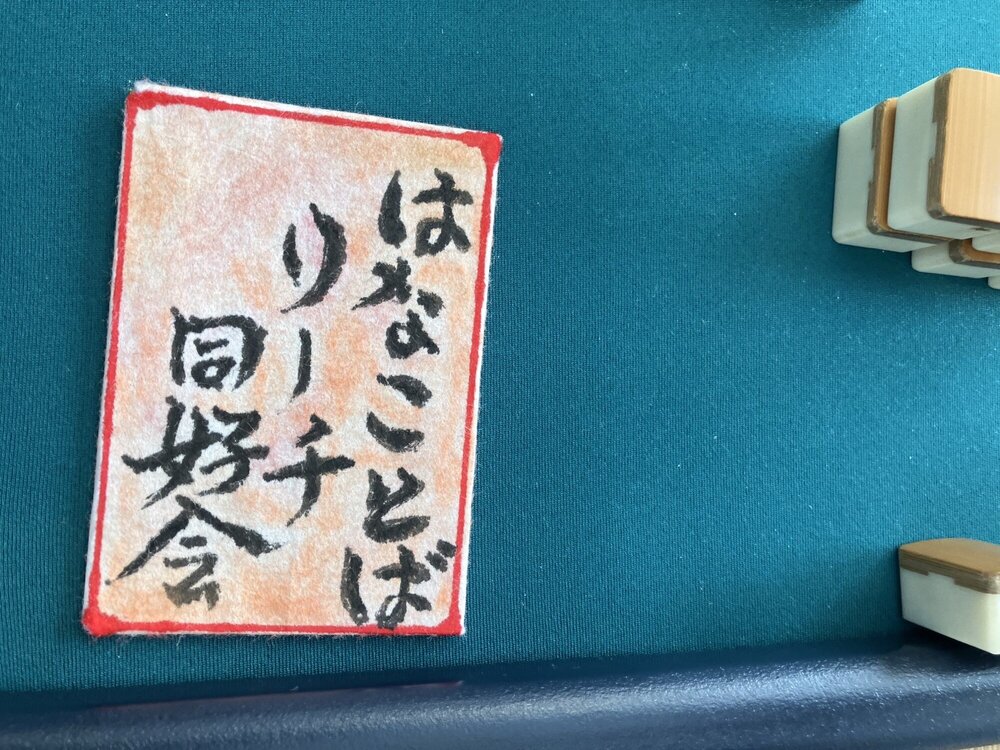 はなことば
りーチ
同好会